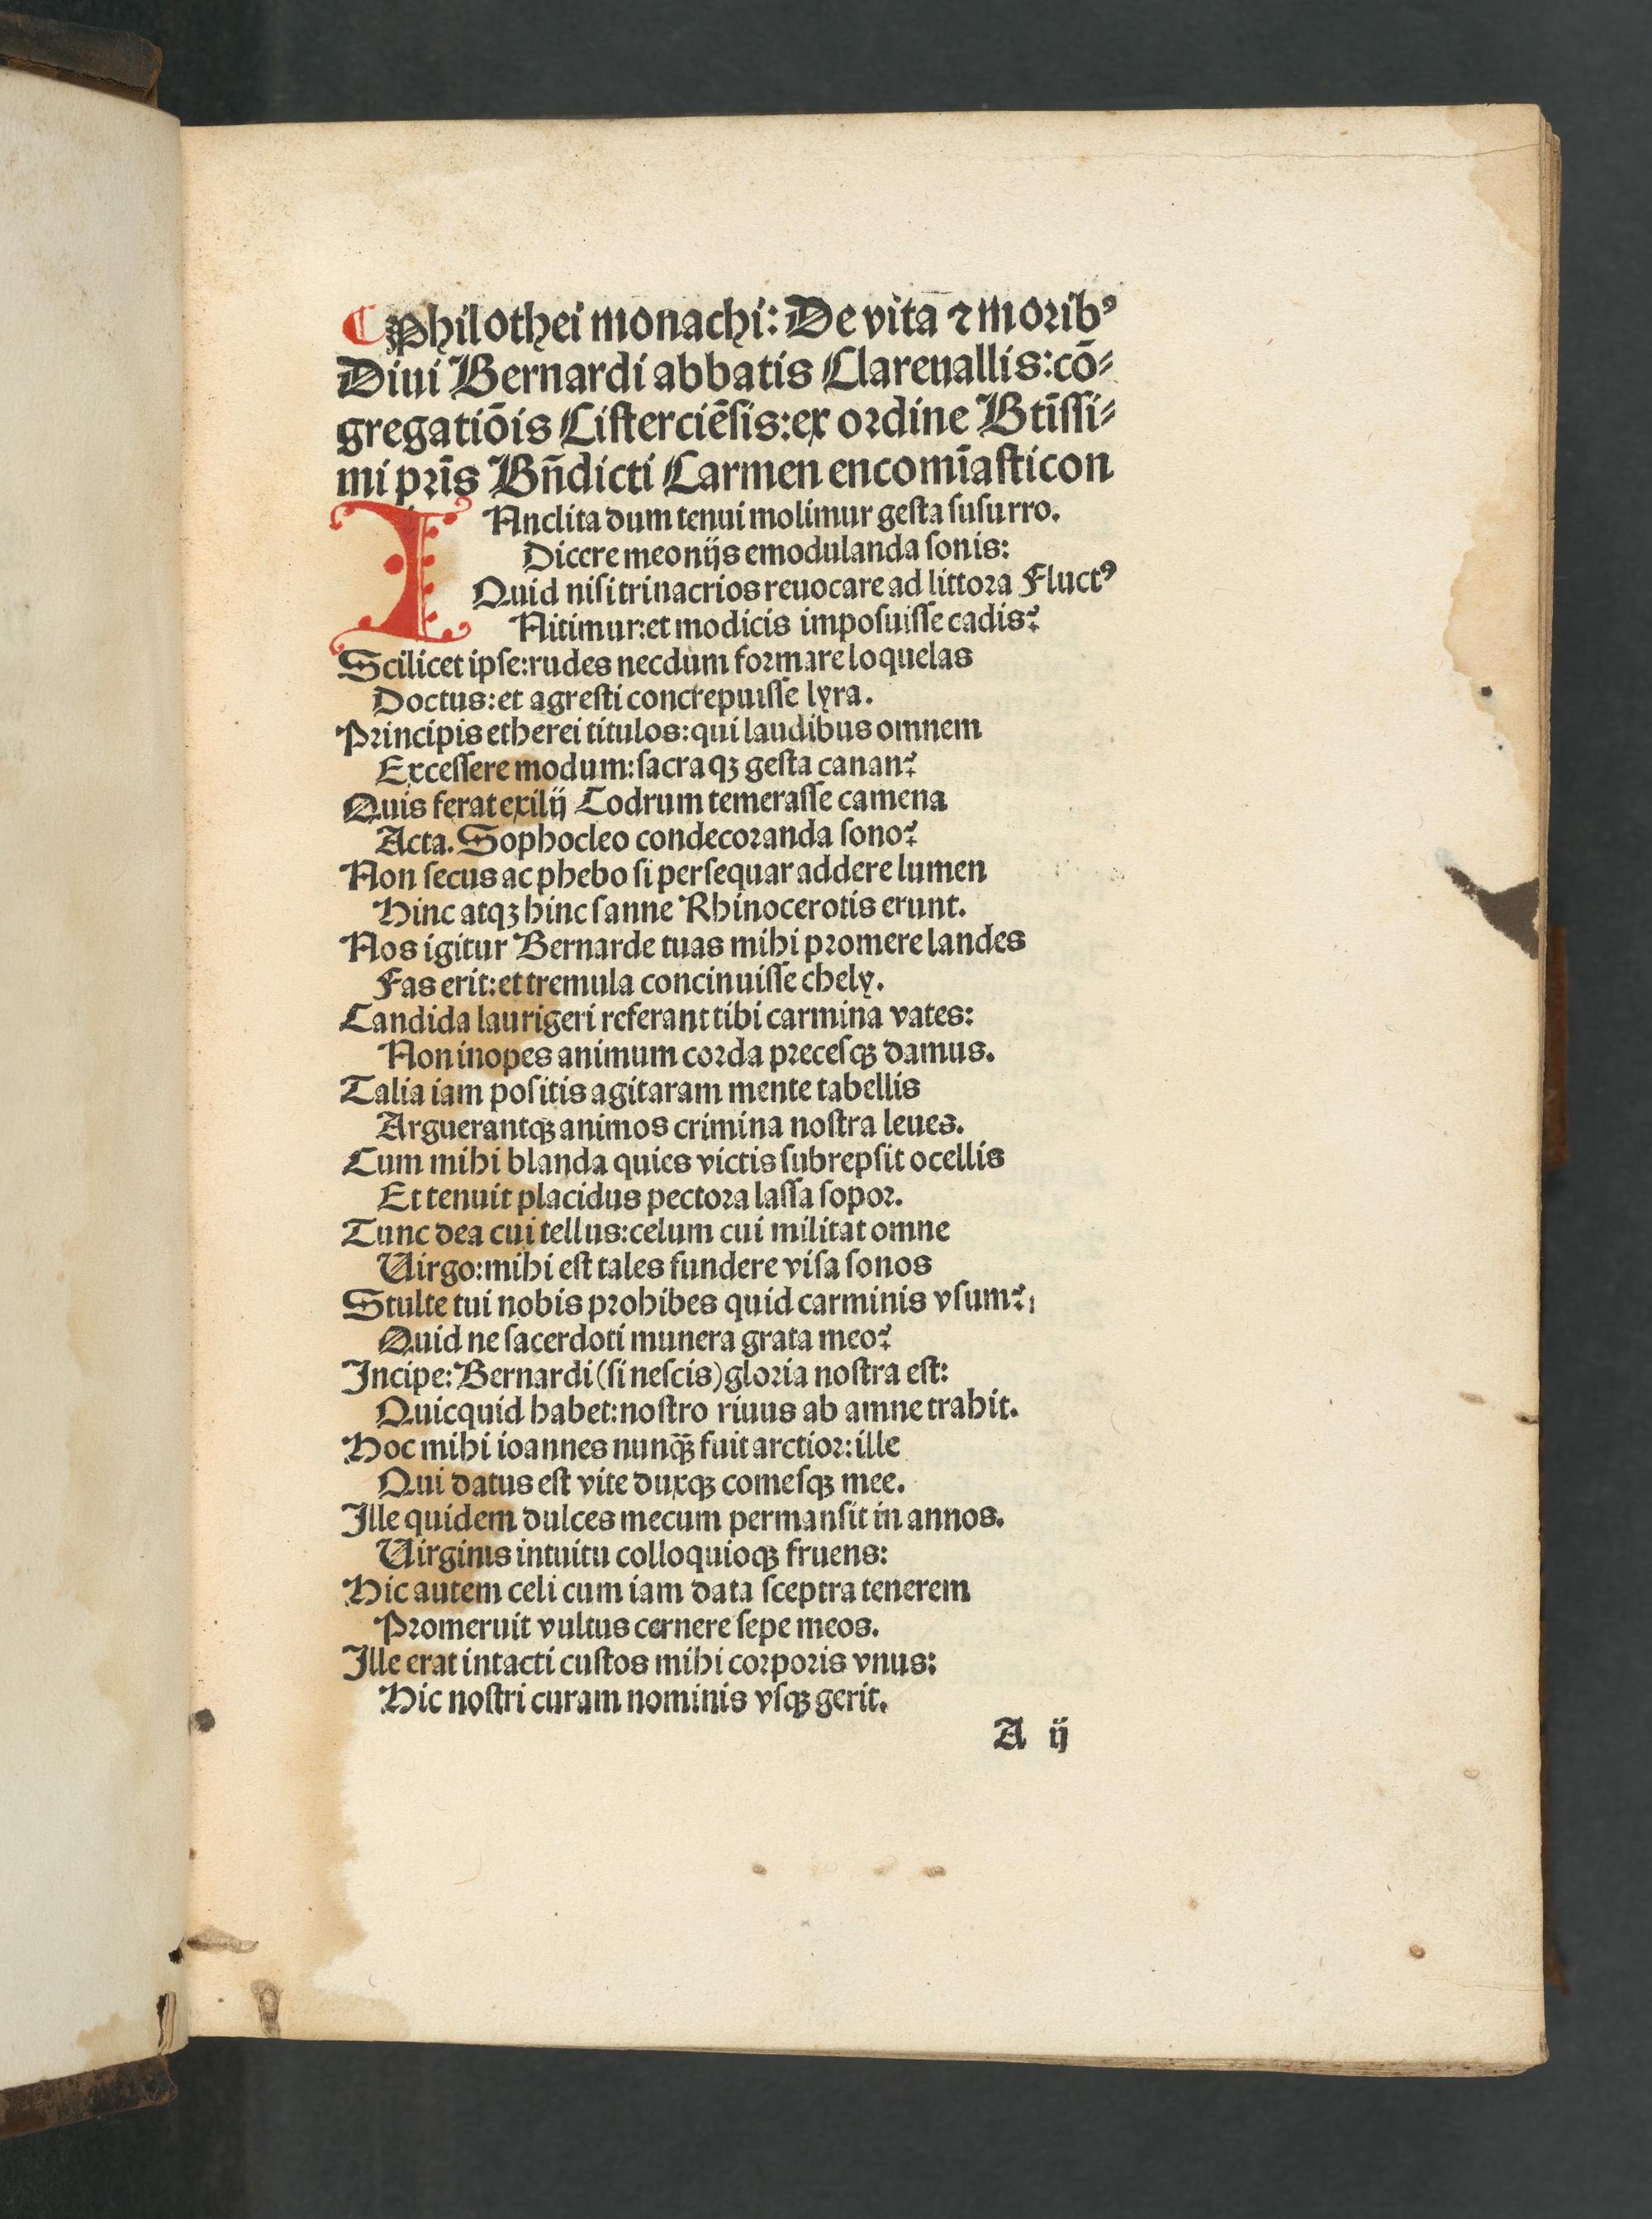 Philothei monachi: De vita ⁊ morib⁹
Diui Bernardi abbatis Clareuallis: cō⸗
gregatiōis Cisterciēsis: ex ordine Btīssi⸗
mi pr̄is Bn̄dicti Carmen encomiasticon
INclita dum tenui molimur gesta susurro.
Dicere meonijs emodulanda sonis:
Quid nisi trinacrios reuocare ad littora Fluct⁹
Nitimur: et modicis imposuisse cadis?
Scilicet ipse: rudes necdum formare loquelas
Doctus: et agresti concrepuisse lyra.
Principis etherei titulos: qui laudibus omnem
Excessere modum: sacraqꝫ gesta canan?
Quis ferat exilij Codrum temerasse camena
Acta. Sophocleo condecoranda sono?
Non secus ac phebo si persequar addere lumen
Hinc atqꝫ hinc sanne Rhinocerotis erunt.
Nos igitur Bernarde tuas mihi promere landes
Fas erit: et tremula concinuisse chely.
Candida laurigeri referant tibi carmina vates:
Non inopes animum corda precesqꝫ damus.
Talia iam positis agitaram mente tabellis
Arguerantqꝫ animos crimina nostra leues.
Cum mihi blanda quies victis subrepsit ocellis
Et tenuit placidus pectora lassa sopor.
Tunc dea cui tellus: celum cui militat omne
Uirgo: mihi est tales fundere visa sonos
Stulte tui nobis prohibes quid carminis vsum?
Quid ne sacerdoti munera grata meo?
Incipe: Bernardi (si nescis) gloria nostra est:
Quicquid habet: nostro riuus ab amne trahit.
Hoc mihi ioannes nunqꝫ̄ fuit arctior: ille
Qui datus est vite duxqꝫ comesqꝫ mee.
Ille quidem dulces mecum permansit in annos.
Uirginis intuitu colloquioqꝫ fruens:
Hic autem celi cum iam data sceptra tenerem
Promeruit vultus cernere sepe meos.
Ille erat intacti custos mihi corporis vnus:
Hic nostri curam nominis vsqꝫ gerit.
A ij